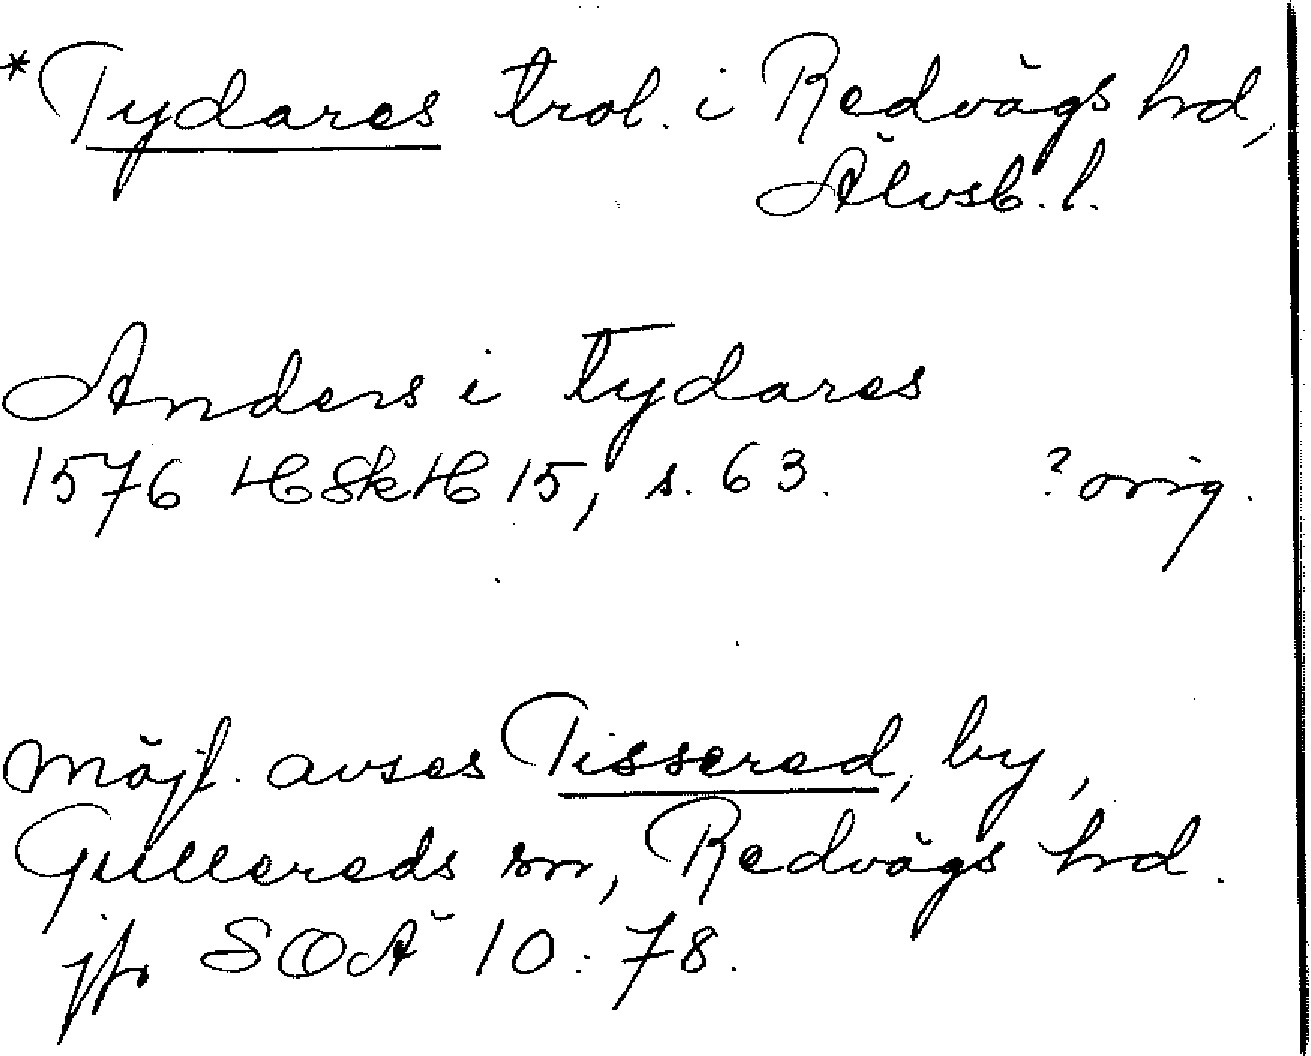 *Tydares trol. i Redvägs hd,
Älvsb. l.
Anders i Tydares
1576 HSkH 15, s. 63. ? orig.
möjl. avses Tissered, by,
Gullereds sn, Redvägs hd.
jfr SOÄ 10:78.